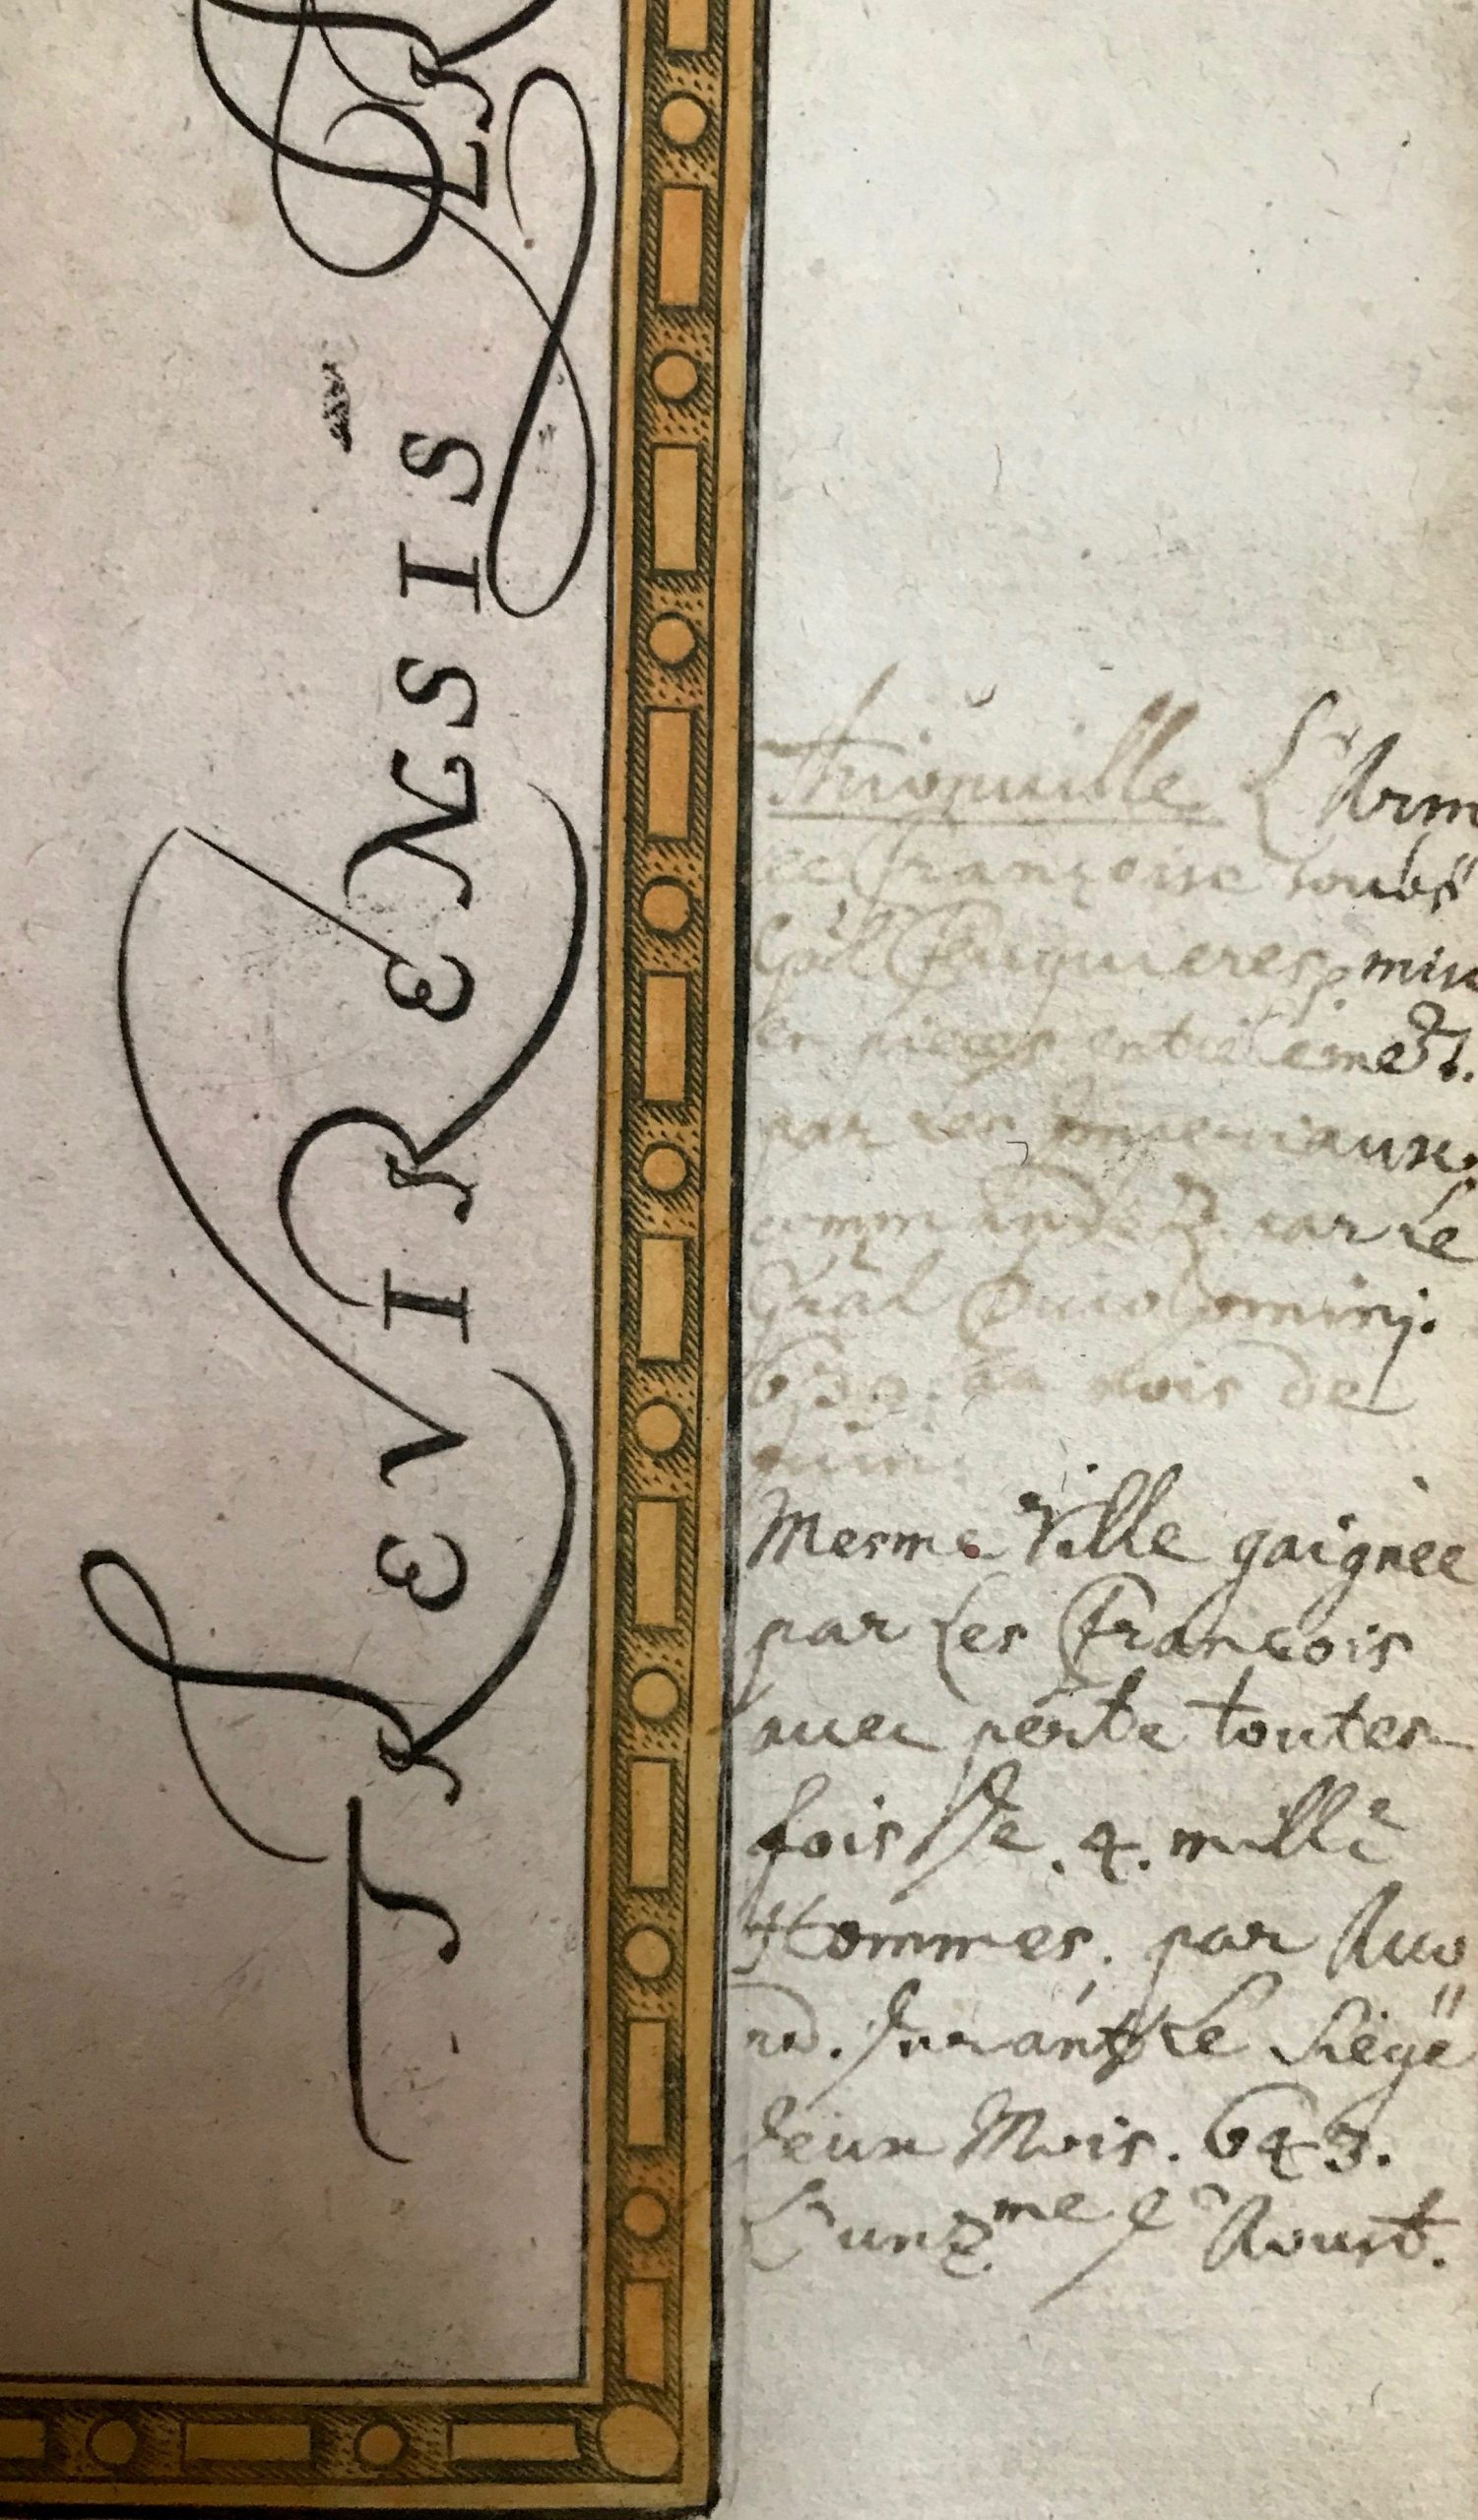 TREVIRENSIS
Thionuille L'Arm
ee Françoise soubs
Gñal Feuquieres, mis
en pieces entierement.
par les Imperiaux.
commandez par le
Gñal Picolominj.
639. au mois de
Juin.
Mesme Ville gaignee
par les François
auec perte toutes
fois de .4. mille
Hommes. par
durant le siege
deun Mois. 643.
L'unz.me d'Aoust.